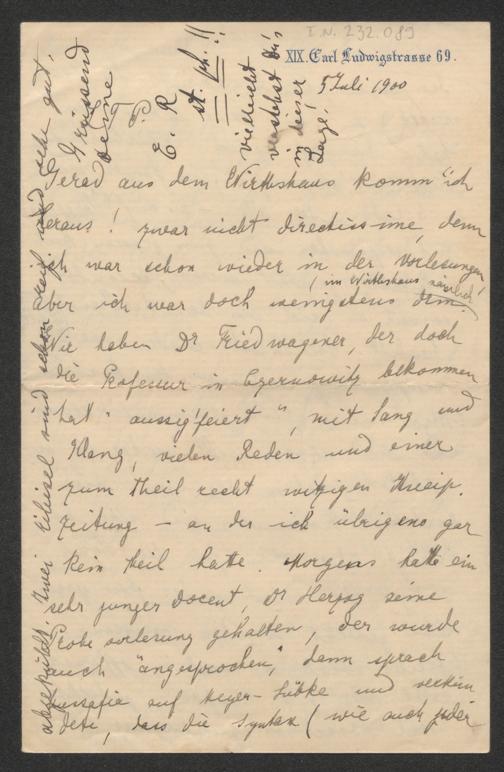 I.N. 232.089
XIX. Carl Ludwigstrasse 69.
5 Juli 1900
Gerad aus dem Wirthshaus komm' ich
heraus! zwar nicht directissime, denn
ich war schon wieder in der Vorlesung,
aber ich war doch wenigstens drin.
(im Wirthshaus nämlich)
Wir haben Dr Friedwagner, der doch
die Professur in Czernowitz bekommen
hat "aussig'feiert", mit Sang und
Klang, vielen Reden und einer
zum Theil recht witzigen Kneip-
zeitung – an der ich übrigens gar
kein Theil hatte. Morgens hatte ein
sehr junger Docent, Dr Herzog seine
Probevorlesung gehalten, der wurde
auch "angesprochen", dann sprach
Mussafia auf Meyer-Lübke und verkün
dete, dass die Syntax (wie auch jeder
abgekühlt. Zwei und schon und sehr gut.
Grüssend
Deine
E. R
st. ph.!!
vielleicht
verstehst Du's
in dieser
Lage!